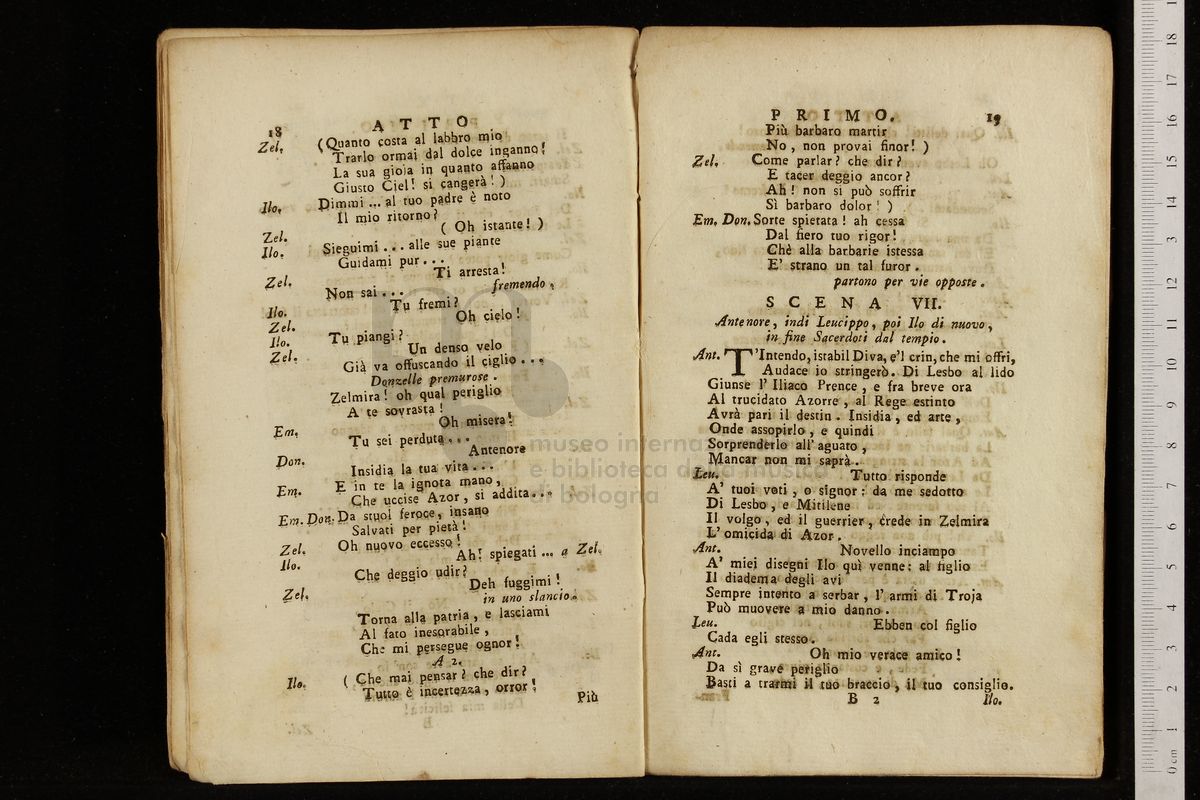 18
A T T O
Zel. (Quanto costa al labbro mio
Trarlo ormai dal dolce inganno!
La sua gioia in quanto affanno
Giusto Ciel! si cangerà! )
Ilo. Dimmi ... al tuo padre è noto
Il mio ritorno?
Zel. ( Oh istante! )
Ilo. Sieguimi ... alle sue piante
Guidami pur ...
Zel. Ti arresta!
fremendo.
Non sai ...
Ilo. Tu fremi?
Zel. Oh cielo!
Ilo. Tu piangi?
Zel. Un denso velo
Già va offuscando il ciglio ...
Donzelle premurose.
Zelmira! oh qual periglio
A te sovrasta!
Oh misera!
Em. Tu sei perduta ...
Antenore
Don. Insidia la tua vita ...
Em. E in te la ignota mano,
Che uccise Azor, si addita ...
Em. Don. Da stuol feroce, insano
Salvati per pietà!
Zel. Oh nuovo eccesso!
Ilo. Ah! spiegati ... a Zel.
Che deggio udir?
Zel. Deh fuggimi!
in uno slancio.
Torna alla patria, e lasciami
Al fato inesorabile,
Che mi persegue ognor!
A 2.
Ilo. ( Che mai pensar? che dir?
Tutto è incertezza, orror!
Più
P R I M O.
19
Più barbaro martir
No, non provai finor! )
Zel. Come parlar? che dir?
E tacer deggio ancor?
Ah! non si può soffrir
Sì barbaro dolor! )
Em. Don. Sorte spietata! ah cessa
Dal fiero tuo rigor!
Chè alla barbarie istessa
E' strano un tal furor.
partono per vie opposte.
S C E N A VII.
Antenore, indi Leucippo, poi Ilo di nuovo,
in fine Sacerdoti dal tempio.
Ant. T'Intendo, istabil Diva, e'l crin, che mi offri,
Audace io stringerò. Di Lesbo al lido
Giunse l' Iliaco Prence, e fra breve ora
Al trucidato Azorre, al Rege estinto
Avrà pari il destin. Insidia, ed arte,
Onde assopirlo, e quindi
Sorprenderlo all' aguato,
Mancar non mi saprà.
Leu. Tutto risponde
A' tuoi voti, o signor: da me sedotto
Di Lesbo, e Mitilene
Il volgo, ed il guerrier, crede in Zelmira
L' omicida di Azor.
Ant. Novello inciampo
A' miei disegni Ilo quì venne: al figlio
Il diadema degli avi
Sempre intento a serbar, l' armi di Troja
Può muovere a mio danno.
Leu. Ebben col figlio
Cada egli stesso.
Ant. Oh mio verace amico!
Da sì grave periglio
Basti a trarmi il tuo braccio, il tuo consiglio.
B 2
Ilo.
museo interna
e biblioteca della musica
di bologna
0 cm 1 2 3 4 5 6 7 8 9 10 11 12 13 14 15 16 17 18